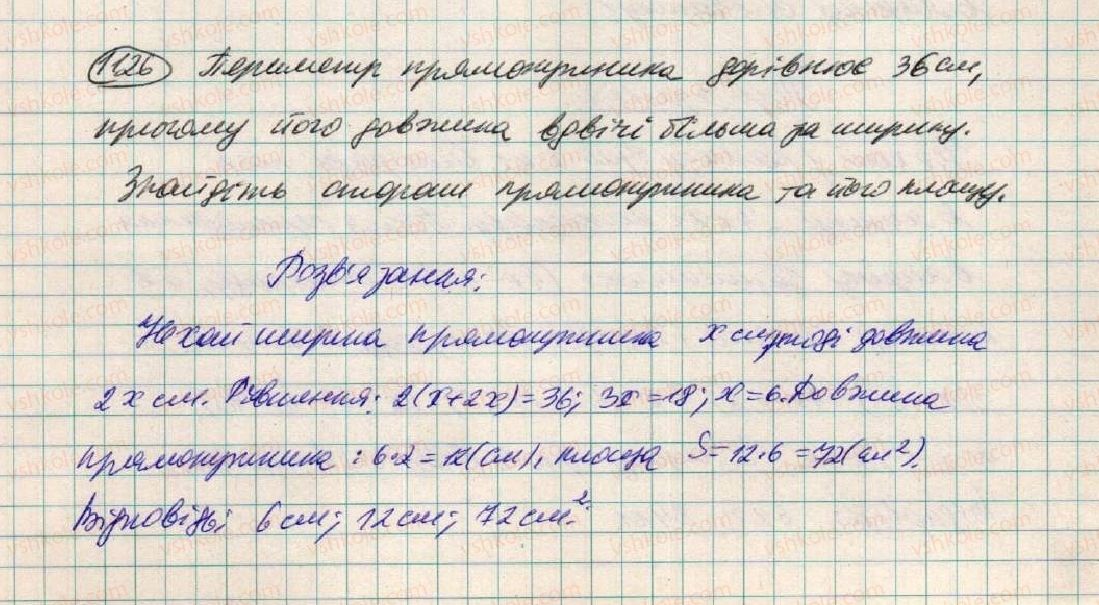 1126 Периметр прямокутника дорівнює 36 см,
при цьому його довжина вдвічі більша за ширину.
Знайдіть сторони прямокутника та його площу.
Розв'язання:
Нехай ширина прямокутника x см, тоді довжина
2x см. Рівняння: 2(x+2x)=36; 3x=18; x=6. Довжина
прямокутника: 6·2=12(см), площа S=12·6=72(см²).
Відповідь: 6 см; 12 см; 72 см².